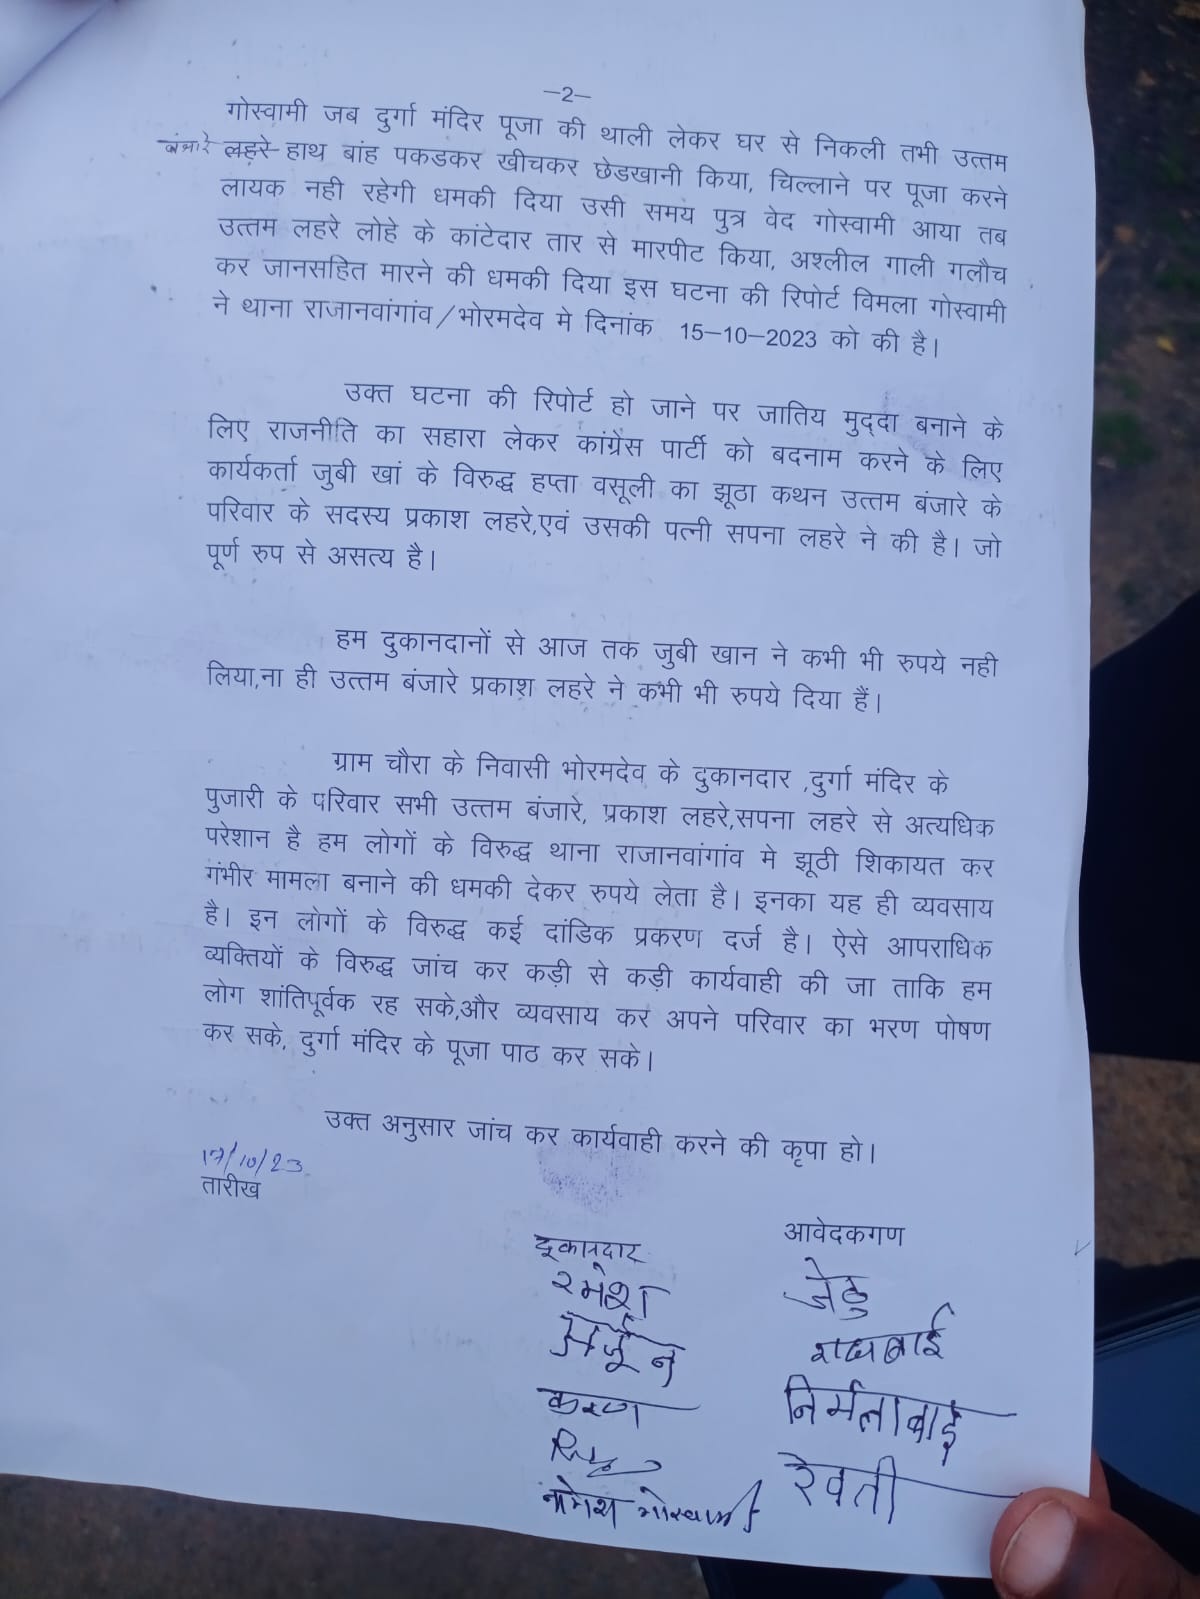 —2—
गोस्वामी जब दुर्गा मंदिर पूजा की थाली लेकर घर से निकली तभी उत्तम
बंजारे लहरे हाथ बांह पकडकर खीचकर छेडखानी किया, चिल्लाने पर पूजा करने
लायक नही रहेगी धमकी दिया उसी समय पुत्र वेद गोस्वामी आया तब
उत्तम लहरे लोहे के कांटेदार तार से मारपीट किया, अश्लील गाली गलौच
कर जानसहित मारने की धमकी दिया इस घटना की रिपोर्ट विमला गोस्वामी
ने थाना राजानवांगांव/भोरमदेव मे दिनांक 15-10-2023 को की है।
उक्त घटना की रिपोर्ट हो जाने पर जातिय मुद्दा बनाने के
लिए राजनीति का सहारा लेकर कांग्रेस पार्टी को बदनाम करने के लिए
कार्यकर्ता जुबी खां के विरुद्ध हप्ता वसूली का झूठा कथन उत्तम बंजारे के
परिवार के सदस्य प्रकाश लहरे,एवं उसकी पत्नी सपना लहरे ने की है। जो
पूर्ण रुप से असत्य है।
हम दुकानदानों से आज तक जुबी खान ने कभी भी रुपये नही
लिया,ना ही उत्तम बंजारे प्रकाश लहरे ने कभी भी रुपये दिया हैं।
ग्राम चौरा के निवासी भोरमदेव के दुकानदार ,दुर्गा मंदिर के
पुजारी के परिवार सभी उत्तम बंजारे, प्रकाश लहरे,सपना लहरे से अत्यधिक
परेशान है हम लोगों के विरुद्ध थाना राजानवांगांव मे झूठी शिकायत कर
गंभीर मामला बनाने की धमकी देकर रुपये लेता है। इनका यह ही व्यवसाय
है। इन लोगों के विरुद्ध कई दांडिक प्रकरण दर्ज है। ऐसे आपराधिक
व्यक्तियों के विरुद्ध जांच कर कड़ी से कड़ी कार्यवाही की जा ताकि हम
लोग शांतिपूर्वक रह सके,और व्यवसाय कर अपने परिवार का भरण पोषण
कर सके, दुर्गा मंदिर के पूजा पाठ कर सके।
उक्त अनुसार जांच कर कार्यवाही करने की कृपा हो।
17/10/23
तारीख
दूकानदार
आवेदकगण
रमेश
जेठु
अर्जुन
करण
निर्मलाबाई
रेवती
गोस्वामी